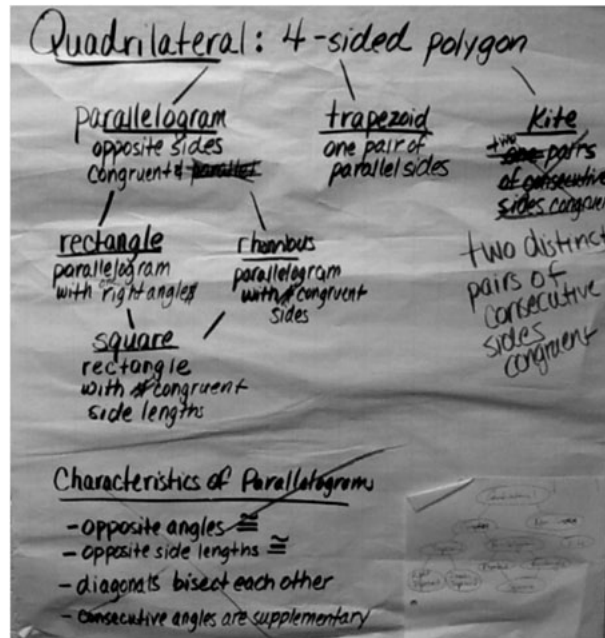 Quadrilateral: 4-sided polygon
parallelogram
opposite sides
congruent & parallel
trapezoid
one pair of
parallel sides
kite
two one pairs
of consecutive
sides congruent
two distinct
pairs of
consecutive
sides
congruent
rectangle
parallelogram
with right angles
rhombus
parallelogram
with congruent
sides
square
rectangle
with congruent
side lengths
Characteristics of Parallelograms
- opposite angles ≅
- opposite side lengths ≅
- diagonals bisect each other
- consecutive angles are supplementary